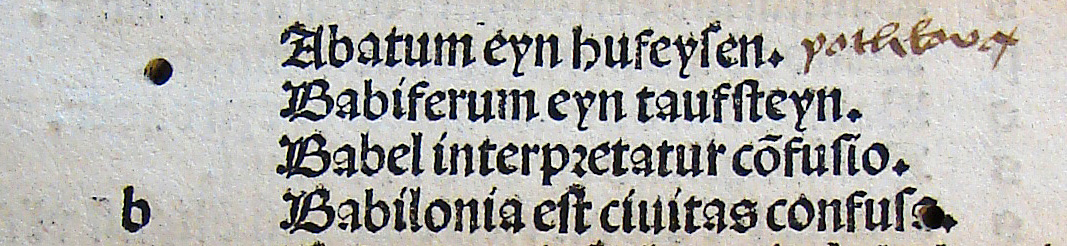 Abatum eyn hufeyſen. pothkova
Babiferum eyn taufſteyn.
Babel interpꝛetatur cõfuſio.
b Babilonia eſt ciuitas confuſa.